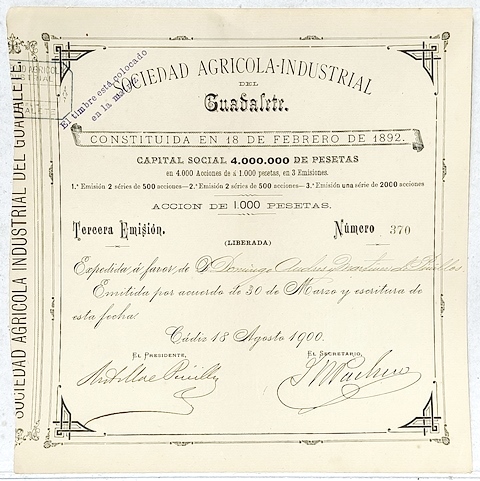 SOCIEDAD AGRICOLA-INDUSTRIAL
DEL
Guadalete.
El timbre está colocado
en la matriz
CONSTITUIDA EN 18 DE FEBRERO DE 1892.
CAPITAL SOCIAL 4.000.000 DE PESETAS
en 4.000 Acciones de á 1.000 pesetas, en 3 Emisiones.
1.ª Emisión 2 séries de 500 acciones—2.ª Emisión 2 séries de 500 acciones—3.ª Emisión una série de 2000 acciones
ACCION DE 1.000 PESETAS.
Tercera Emisión.
Número 370
(LIBERADA)
Expedida á favor de D Domingo
Emitida por acuerdo de 30 de Marzo y escritura de
esta fecha.
Cádiz 18 Agosto 1900.
EL PRESIDENTE,
EL SECRETARIO,
SOCIEDAD AGRICOLA INDUSTRIAL DEL GUADALETE.